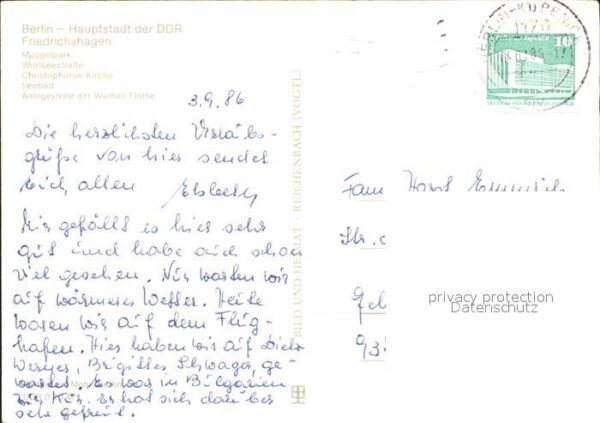 Berlin – Hauptstadt der DDR
Friedrichshagen
Müggelpark
Wohlseestraße
Christophorus-Kirche
Seebad
Anlegestelle der Weißen Flotte
3.9.86
Die herzlichsten Urlaubs-
grüße von hier sendet
Euch allen Elsbeth
Mir gefällt es hier sehr
gut und habe auch schon
viel gesehen. Nur warten wir
auf wärmeres Wetter. Heute
waren wir auf dem Flug-
hafen. Hier haben wir auf
Werner, Brigittes Schwager, ge-
wartet. Er war in Bulgarien
zur Kur. Er hat sich darüber
sehr gefreut.
BILD UND HEIMAT · REICHENBACH (VOGTL)
BERLIN-KÖPENICK
1170
10
Fam Horst
Str.
privacy protection
Datenschutz